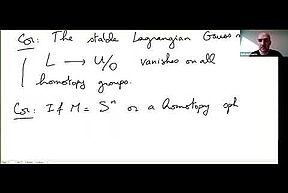 Cor: The stable Lagrangian Gauss
L → U/O vanishes on all
homotopy groups.
Cor: If M = Sⁿ or a homotopy sph